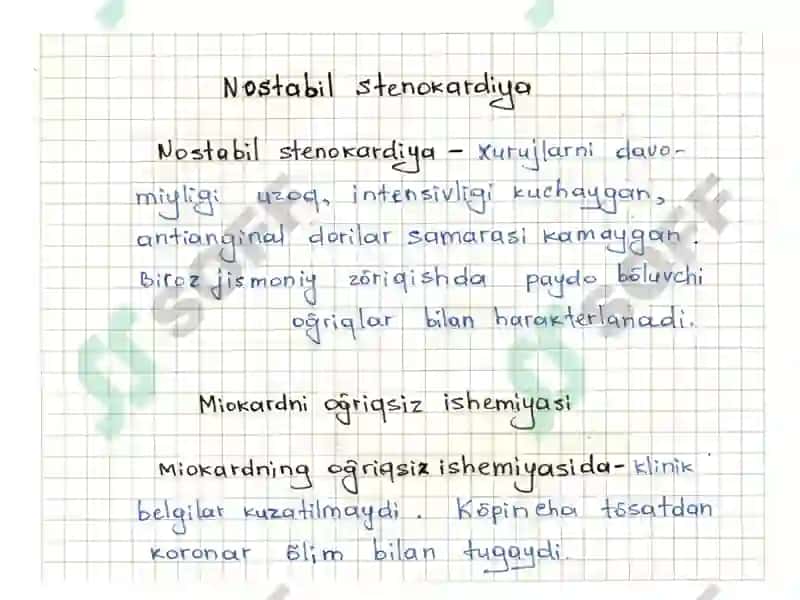 Nostabil stenokardiya
Nostabil stenokardiya - xurujlarni davo-
miyligi uzoq, intensivligi kuchaygan,
antianginal dorilar samarasi kamaygan.
Biroz jismoniy zõriqishda paydo bõluvchi
oğriqlar bilan harakterlanadi.
Miokardni oğriqsiz ishemiyasi
Miokardning oğriqsiz ishemiyasida - klinik
belgilar kuzatilmaydi. Kõpincha tõsatdan
koronar õlim bilan tugaydi.
SOFF
SOFF